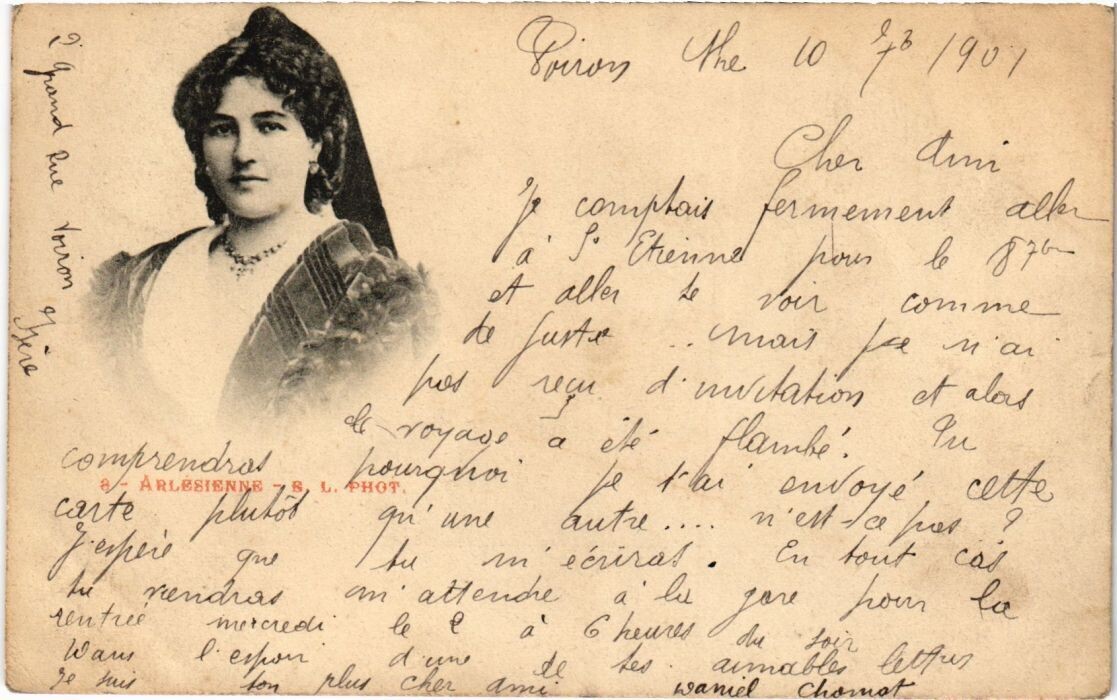 Voiron the 10 7b 1901
Cher Ami
Je comptais fermement aller
à St Etienne pour le 8 7bre
et aller te voir comme
de juste .. mais je n'ai
pas reçu d'invitation et alors
le voyage a été flambé. Tu
comprendras pourquoi je t'ai envoyé cette
8 - ARLÉSIENNE - S. L. PHOT.
carte plutôt qu'une autre.... n'est-ce pas ?
J'espère que tu m'écriras. En tout cas
tu viendras m'attendre à la gare pour la
rentrée mercredi le 2 à 6 heures du soir
Dans l'espoir d'une de tes aimables lettres
Je suis ton plus cher ami Daniel Chomat
2 Grand Rue Voiron
Isère